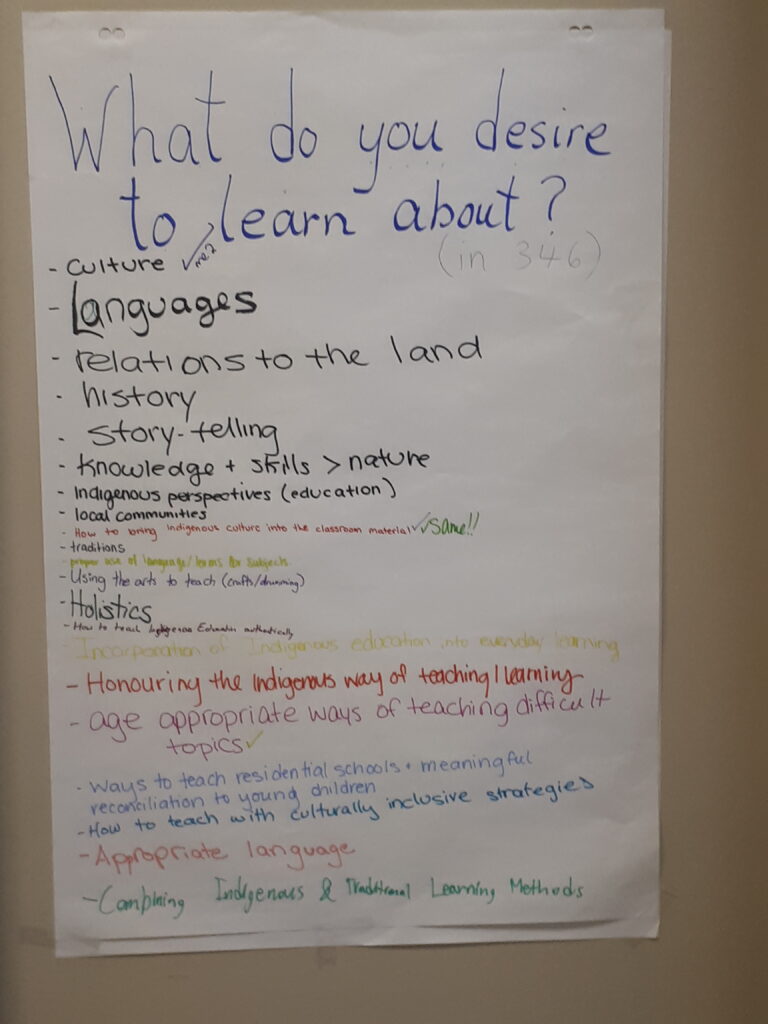 What do you desire
to learn about?
(in 346)
- culture ✓
- Languages
- relations to the land
- history
- story-telling
- Knowledge + skills > nature
- Indigenous perspectives (education)
- local communities
- How to bring Indigenous culture into the classroom material ✓✓ same!!
- traditions
- proper use of language/terms for subjects
- Using the arts to teach (crafts/drumming)
- Holistics
- How to teach Indigenous Education authentically
- Incorporation of Indigenous education into everyday learning
- Honouring the Indigenous way of teaching/learning
- age appropriate ways of teaching difficult
topics ✓
- Ways to teach residential schools + meaningful
reconciliation to young children
- How to teach with culturally inclusive strategies
- Appropriate language
- Combining Indigenous & Traditional Learning Methods